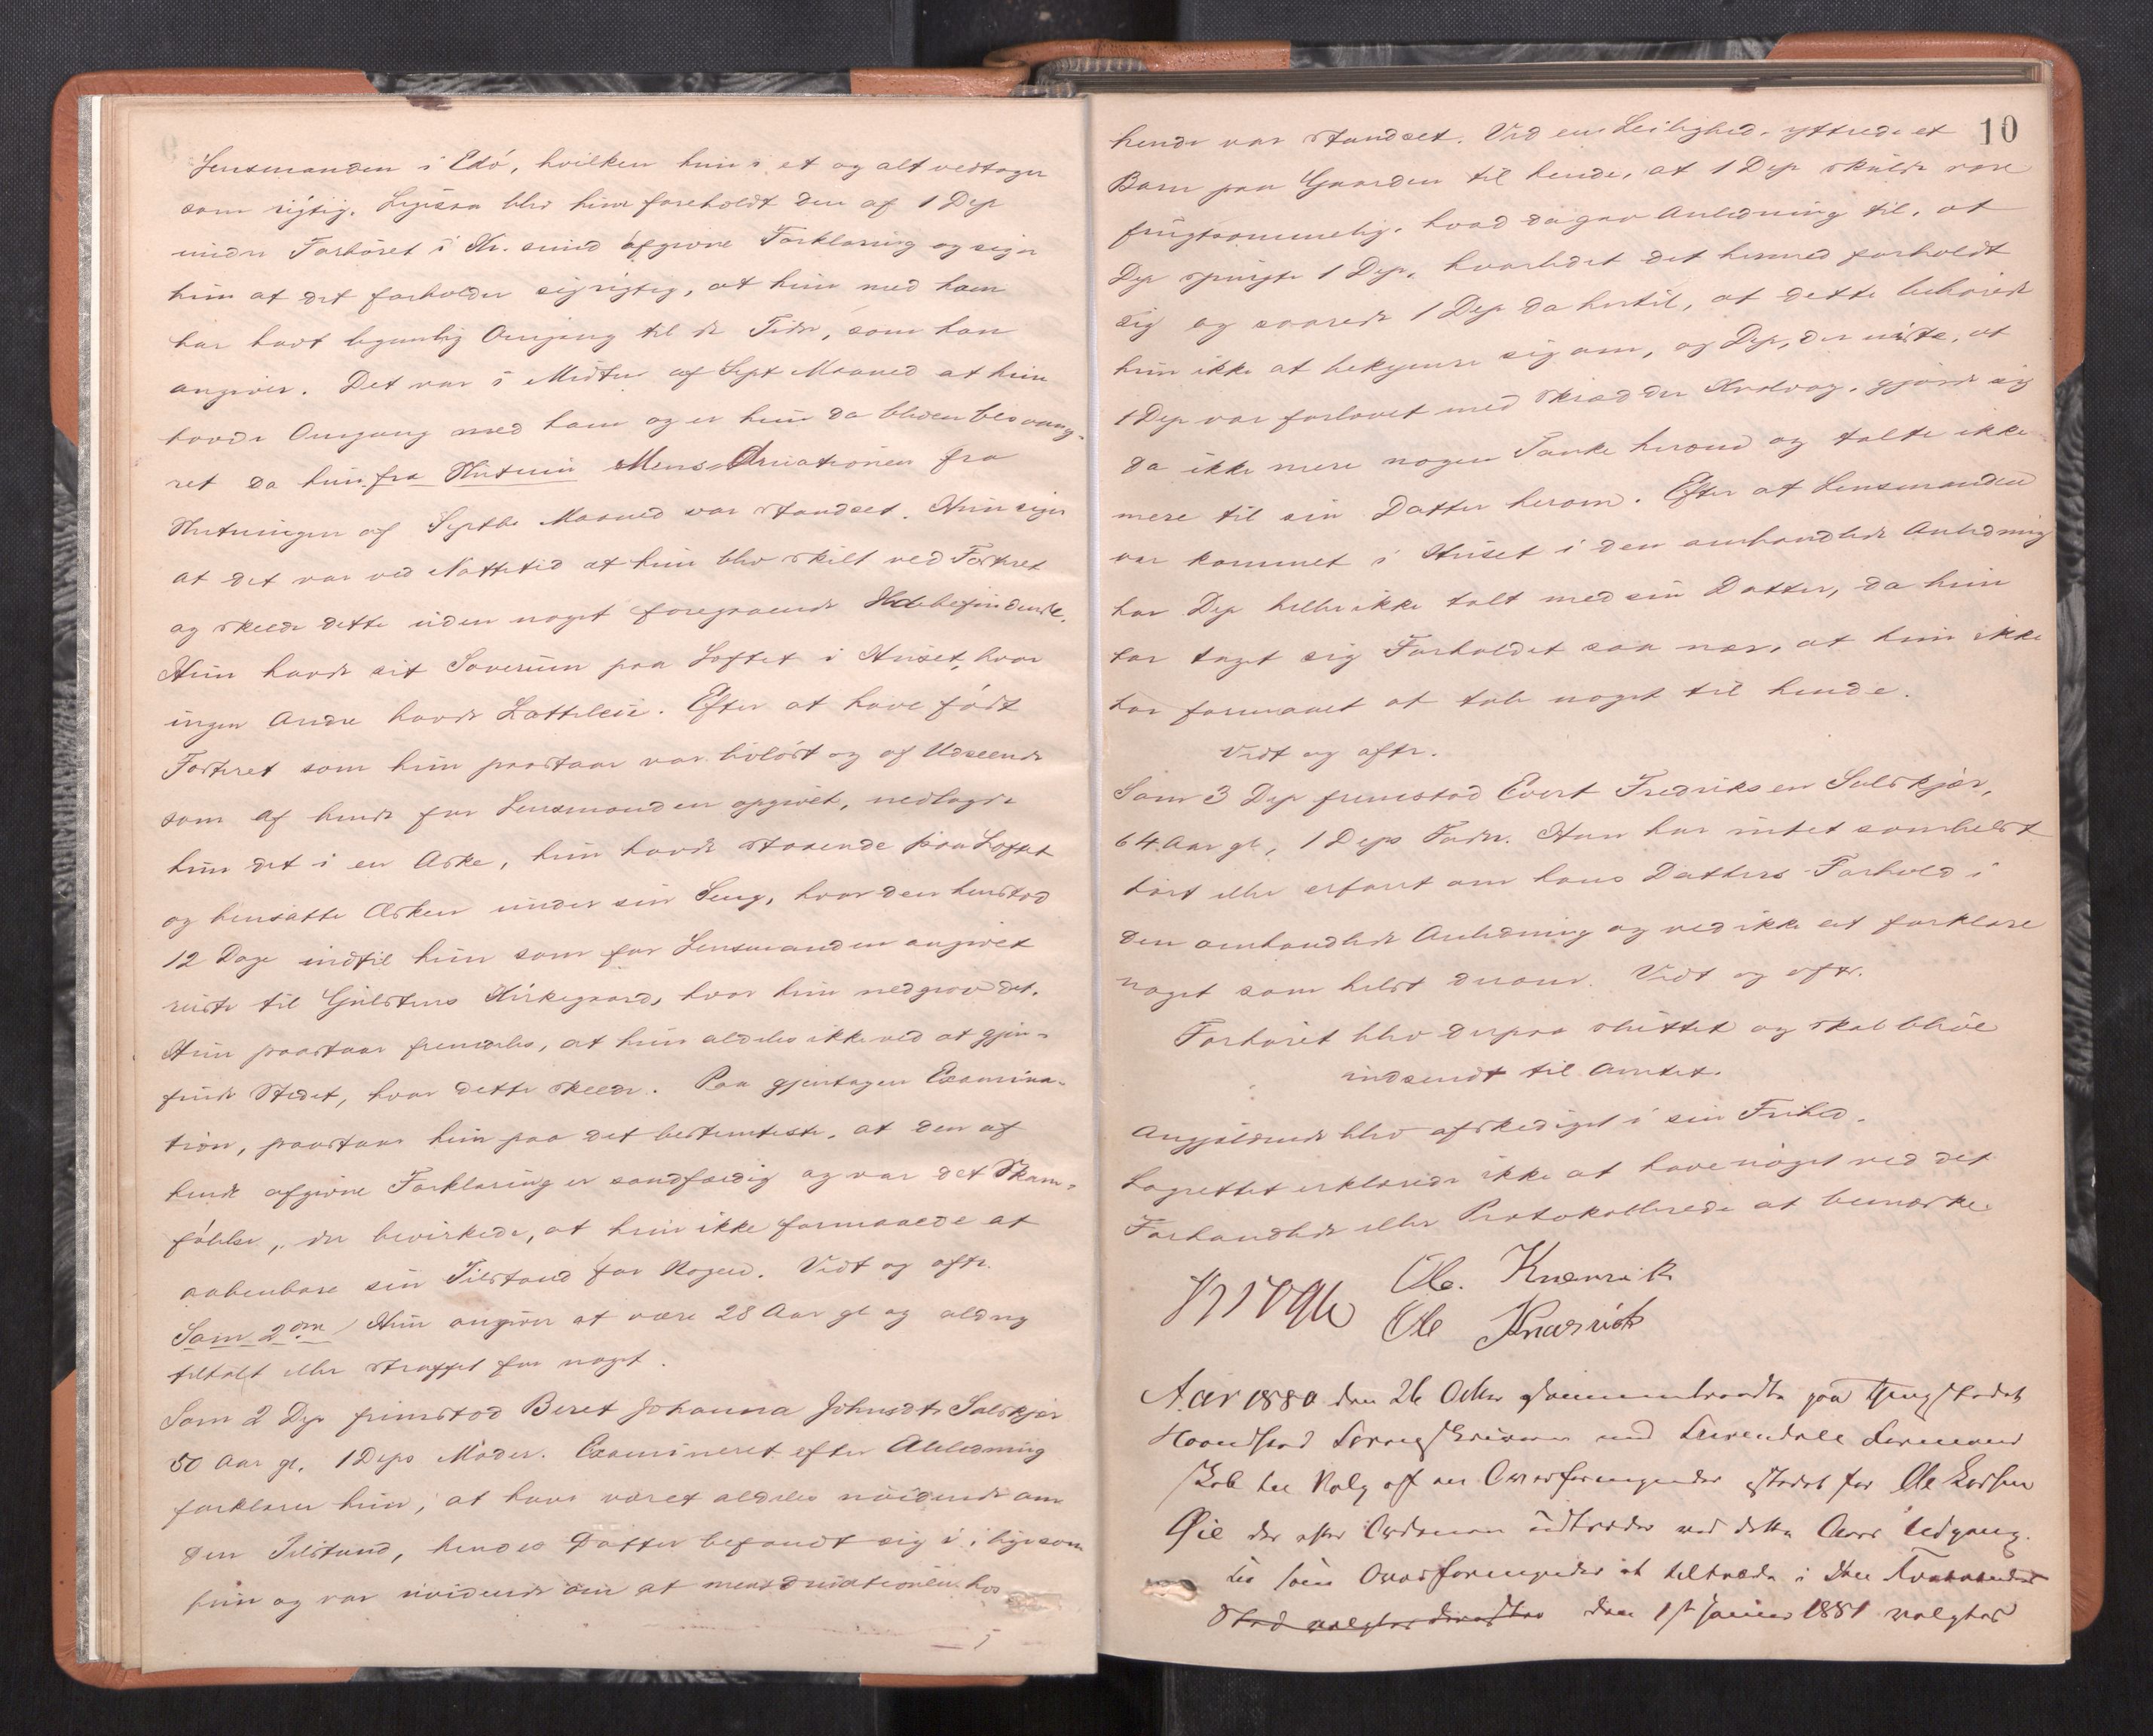 Lensmanden i Edö, hvilken hun i et og alt vedtager
som rigtig. Ligesaa blev hun foreholdt den af 1 Dep
under Forhöret i Kr.sund afgivne Forklaring og siger
hun at det forholder sig rigtig, at hun med ham
har havt legemlig Omgang til de Tider, som han
angiver. Det var i Midten af Sept Maaned at hun
havde Omgang med ham og er hun da bleven besvang-
ret da hun fra Menstruationen fra
Slutningen af Septbr Maaned var standset. Hun siger
at det var ved Nattetid at hun blev skilt ved Fosteret
og skeede dette uden noget foregaaende Ildebefindende.
Hun havde sit Soverum paa Loftet i Huset, hvor
ingen Andre havde Natteleie. Efter at have födt
Fosteret som hun paastaar var livlöst og af Udseende
som af hende for Lensmanden opgivet, nedlagde
hun det i en Æske, hun havde staaende paa Loftet
og hensatte Æsken under sin Seng, hvor den henstod
12 Dage indtil hun som for Lensmanden angivet
reiste til Gulstens Kirkegaard, hvor hun nedgrov det.
Hun paastaar fremdeles, at hun aldeles ikke ved at gjen-
finde Stedet, hvor dette skeede. Paa gjentagen Examina-
tion, paastaar hun paa det bestemteste, at den af
hende afgivne Forklaring er sandfærdig og var det Skam-
fölelse, der bevirkede, at hun ikke formaaede at
aabenbare sin Tilstand for Nogen. Vedt og aftr.
Hun angiver at være 28 Aar gl og aldrig
tiltalt eller straffet for noget.
Som 2 Dep fremstod Beret Johanna Johnsdtr Solskjær
50 Aar gl. 1 Deps Moder. Examineret efter Anledning
forklarer hun, at have været aldeles uvidende om
den Tilstand, hendes Datter befandt sig i, ligesom
hun og var uvidende om at menstruationen hos
10
hende var standset. Ved en Leilighed yttrede et
Barn paa Gaarden til hende, at 1 Dep skulde være
frugtsommelig, hvad da gav Anledning til, at
Dep spurgte 1 Dep, hvorledes det hermed forholdt
sig og svarede 1 Dep da hertil, at dette behövede
hun ikke at bekymre sig om, og Dep, der vidste, at
1 Dep var forlovet med Skrædder, gjorde sig
da ikke mere nogen Tanke herom og talte ikke
mere til sin Datter herom. Efter at Lensmanden
var kommet i Huset i den omhandlede Anledning
har Dep heller ikke talt med sin Datter, da hun
har taget sig Forholdet saa nær, at hun ikke
har formaaet at tale noget til hende.
Vedt og aftr.
Som 3 Dep fremstod Evert Fredriksen Solskjær,
64 Aar gl, 1 Deps Fader. Han har intet somhelst
hört eller erfaret om hans Datters Forhold i
den omhandlede Anledning og ved ikke at forklare
noget som helst derom. Vedt og aftr.
Forhöret blev derpaa sluttet og skal blive
indsendt til Amtet.
Angjældende blev afskediget i sin Frihed.
Lagrettet erklærede ikke at have noget ved det
Forhandlede eller Protokollerede at bemærke.
Krogh Ole Knarvik
Ole Knarvik
Aar 1880 den 26 Octbr paa Thingstedet
med Surendals
Valg af en Overformynder istedet for Ole Larsen
Øie der efter udtræder ved dette Aars Udgang.
som Overformynder at tiltræde i
den 1ste Januar 1881 valgtes